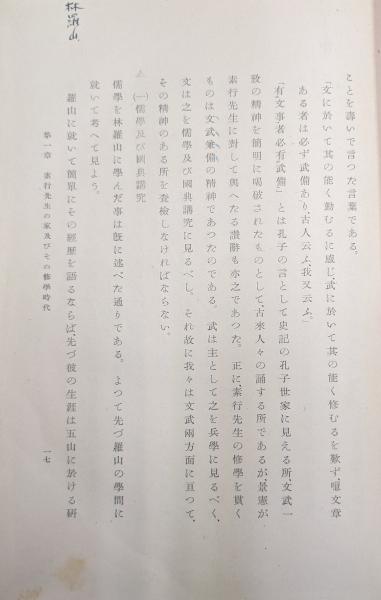 林羅山
ことを壽いで言つた言葉である。
「文に於いて其の能く勤むるに感じ、武に於いて其の能く修むるを歎ず、噫文章
ある者は必ず武備あり、古人云ふ、我又云ふ。」
「有文事者必有武備」とは孔子の言として史記の孔子世家に見える所、文武一
致の精神を簡明に喝破されたものとして、古來人々の誦する所であるが、景憲が
素行先生に對して與へたる讃辭も亦之であつた。正に、素行先生の修學を貫く
ものは文武兼備の精神であつたのである。武は主として之を兵學に見るべく、
文は之を儒學及び國典講究に見るべし。それ故に我々は文武兩方面に亘つて、
その精神のある所を査檢しなければならない。
(一)儒學及び國典講究
儒學を林羅山に學んだ事は旣に述べた通りである。よつて先づ羅山の學問に
就いて考へて見よう。
羅山に就いて簡單にその經歷を語るならば、先づ彼の生涯は五山に於ける硏
第一章 素行先生の家及びその修學時代
一七